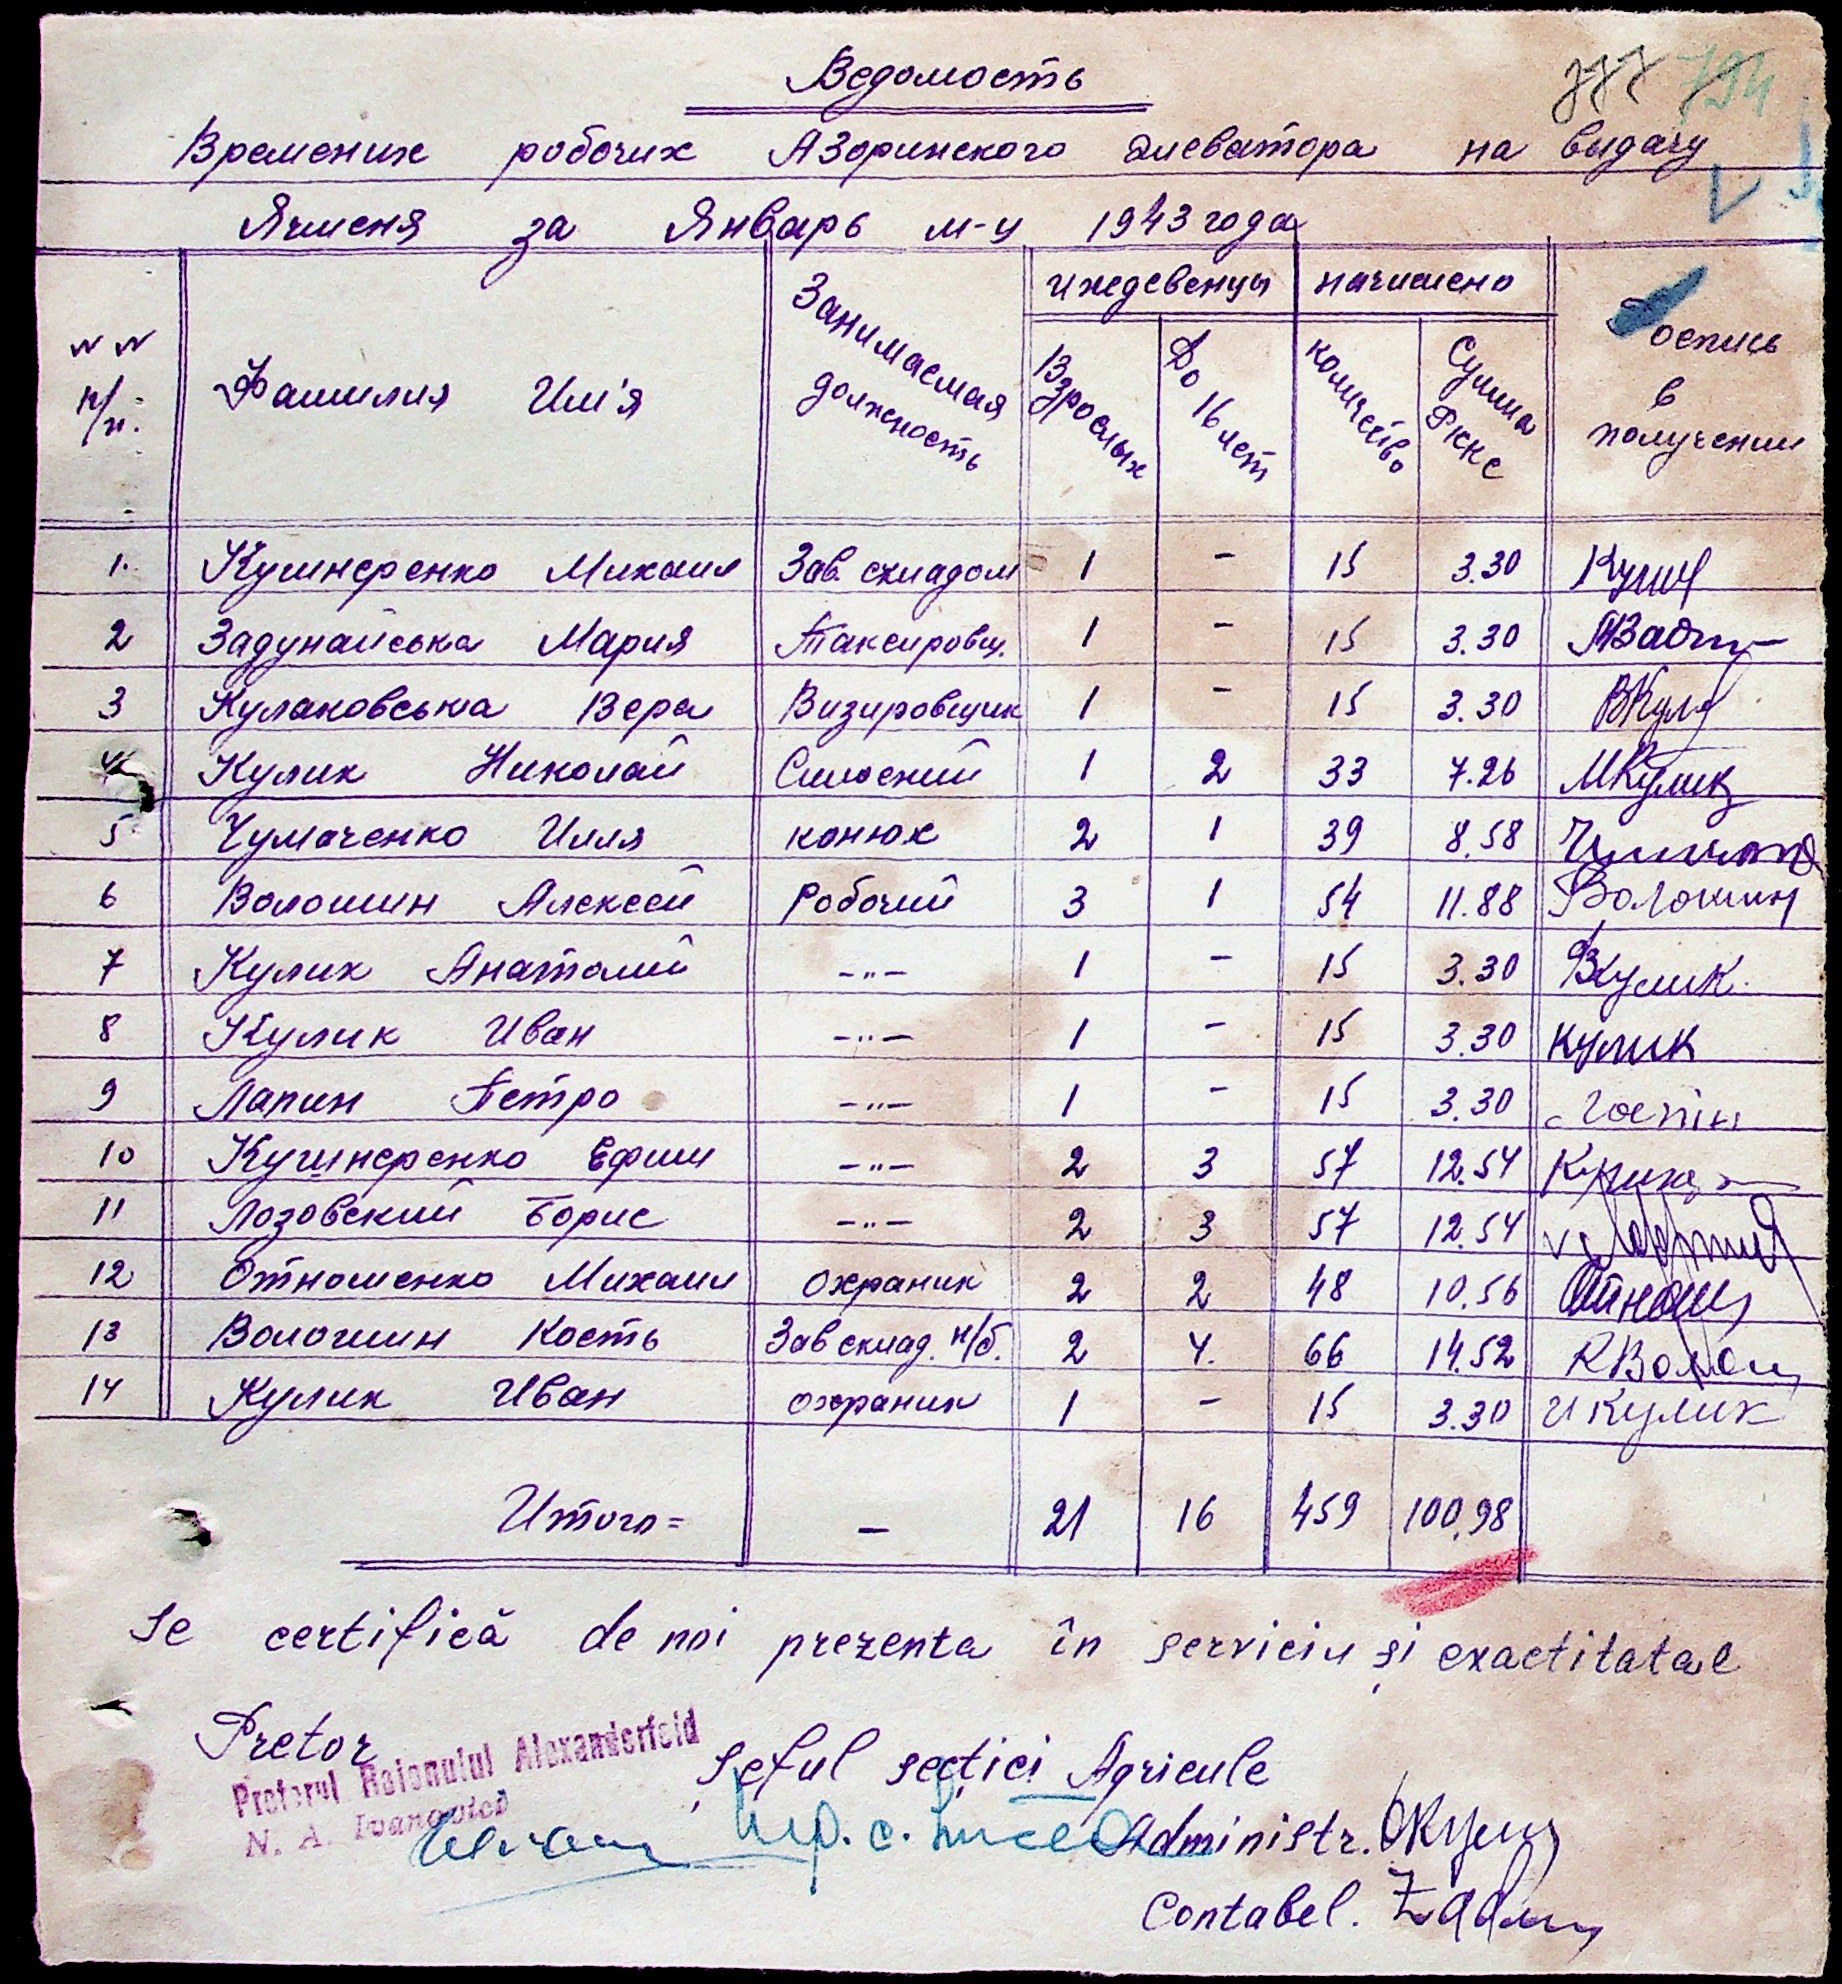 777 794
Ведомость
Времених робочих Азоринского Элеватора на выдачу
Ячменя за Январь м-ц 1943 года
№№ п/п. Фамилия Им'я Занимаемая должность иждевенцы начислено Роспись в получении
Взрослых До 16 лет количество Сумма РККС
1. Кушнеренко Михаил Зав. складом 1 - 15 3.30 Кушн
2 Задунайська Мария Таксировщ. 1 - 15 3.30 МЗадун
3 Кулаковська Вера Визировщик 1 - 15 3.30 ВКула
4 Кулик Николай Силосний 1 2 33 7.26 МКулик
5 Чумаченко Илля конюх 2 1 39 8.58
6 Волошин Алексей Робочий 3 1 54 11.88 Волошин
7 Кулик Анатолий -"- 1 - 15 3.30 Кулик.
8 Кулик Иван -"- 1 - 15 3.30 Кулик
9 Лапин Петро -"- 1 - 15 3.30 Лапін
10 Кушнеренко Ефим -"- 2 3 57 12.54
11 Лозовский Борис -"- 2 3 57 12.54
12 Отношенко Михаил Охраник 2 2 48 10.56 Отнош
13 Волошин Кость Зав склад. н/б. 2 4. 66 14.52 КВолош
14 Кулик Иван охраник 1 - 15 3.30 И Кулик
Итого= - 21 16 459 100.98
Se certifică de noi prezenta în serviciu și exactitatae
Pretor Șeful secției Agricule
Pretorul Raionului Alexanderfeld
N. A. Ivanovici
Administr.
Contabel. Zадун